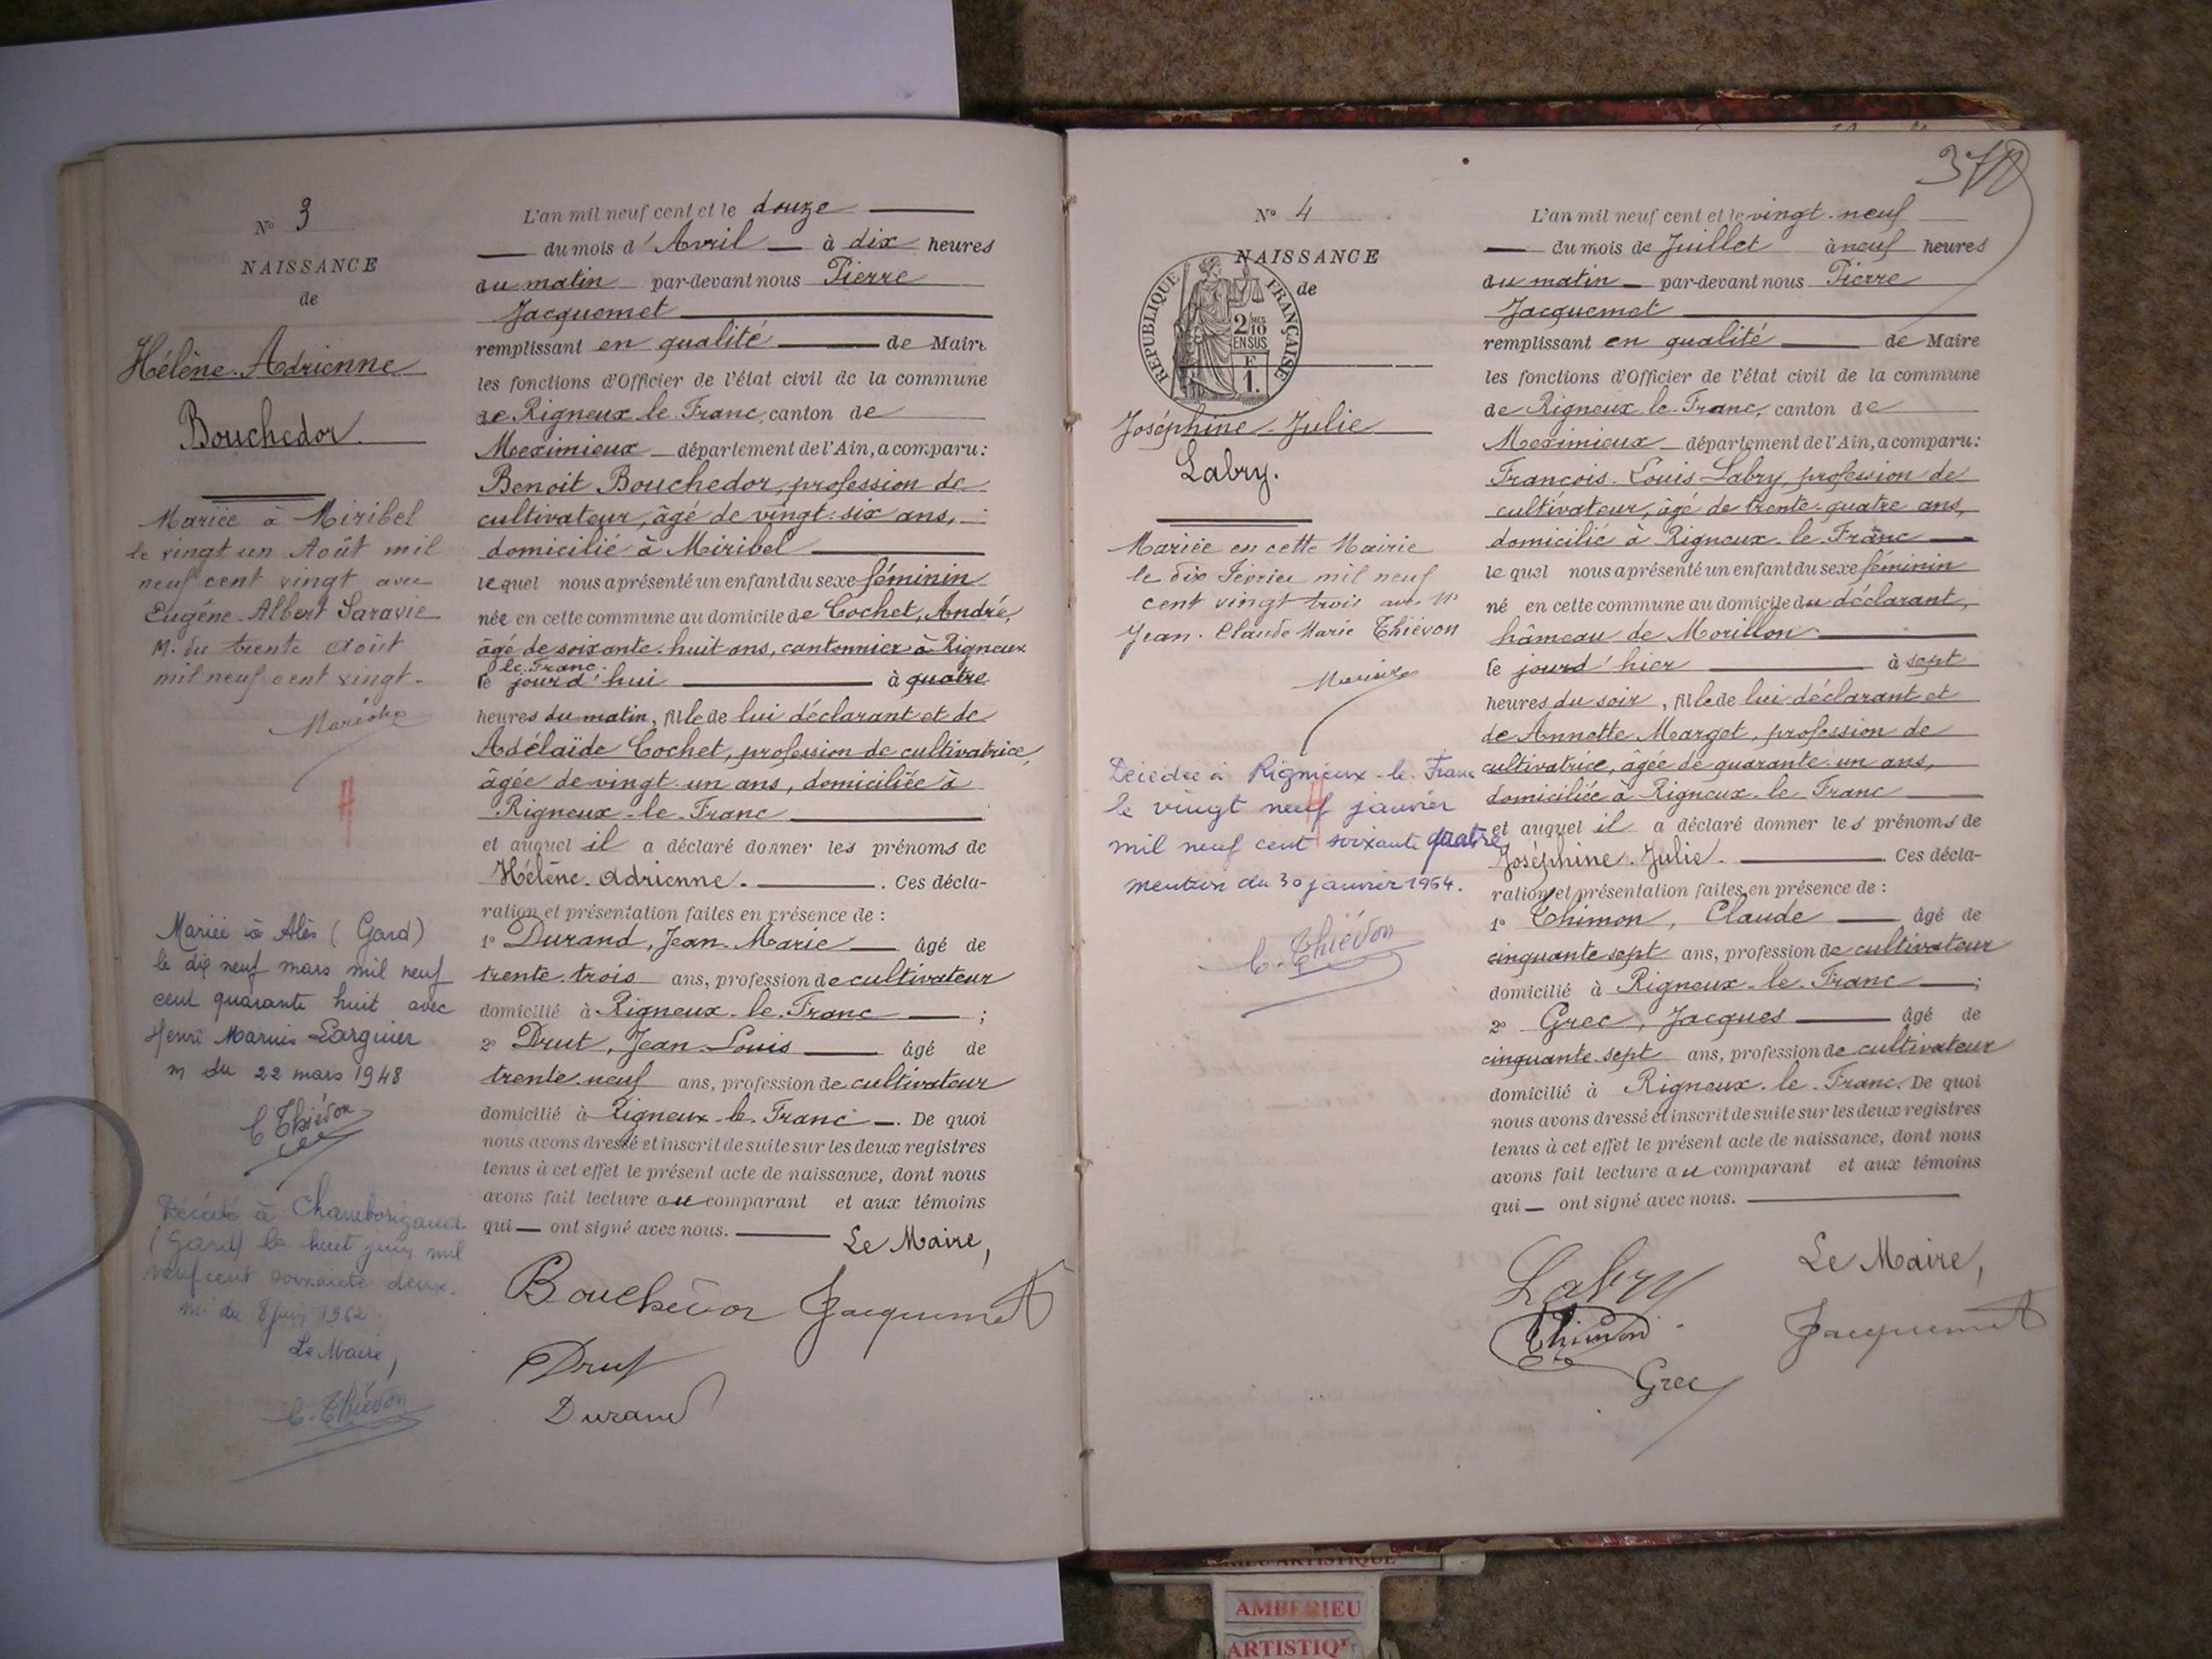 N° 3
NAISSANCE
de
Hélène-Adrienne
Bouchedor.
Mariée à Miribel
le vingt un Août mil
neuf cent vingt avec
Eugène-Albert Saravie
M. du trente Août
mil neuf cent vingt.
Mariée à Alès (Gard)
le dix neuf mars mil neuf
cent quarante huit avec
Henri Marius Larguier
m du 22 mars 1948
C Thiévon
Décédée à Chamborigaud
(Gard) le huit juin mil
neuf cent soixante deux.
m. du 8 juin 1962
Le Maire,
C. Thiévon
L'an mil neuf cent et le douze
du mois d'Avril à dix heures
du matin par-devant nous Pierre
Jacquemet
remplissant en qualité de Maire
les fonctions d'Officier de l'état civil de la commune
de Rigneux le Franc, canton de
Meximieux département de l'Ain, a comparu:
Benoit Bouchedor, profession de
cultivateur, âgé de vingt-six ans,
domicilié à Miribel
lequel nous a présenté un enfant du sexe féminin
née en cette commune au domicile de Cochet, André,
âgé de soixante-huit ans, cantonnier à Rigneux
le Franc.
le jourd'hui à quatre
heures du matin, fille de lui déclarant et de
Adélaïde Cochet, profession de cultivatrice,
âgée de vingt-un ans, domiciliée à
Rigneux-le-Franc
et auquel il a déclaré donner les prénoms de
Hélène-Adrienne. Ces décla-
ration et présentation faites en présence de :
1° Durand, Jean-Marie âgé de
trente-trois ans, profession de cultivateur
domicilié à Rigneux-le-Franc ;
2° Drut, Jean-Louis âgé de
trente-neuf ans, profession de cultivateur
domicilié à Rigneux-le-Franc. De quoi
nous avons dressé et inscrit de suite sur les deux registres
tenus à cet effet le présent acte de naissance, dont nous
avons fait lecture au comparant et aux témoins
qui ont signé avec nous.
Le Maire,
Bouchedor Jacquemet
Drut
Durand
37
N° 4
NAISSANCE
de
REPUBLIQUE FRANÇAISE
2/10 MES
EN SUS
F
1.
Joséphine-Julie
Labry.
Mariée en cette Mairie
le dix Février mil neuf
cent vingt trois avec Mr
Jean-Claude Marie Thiévon
Décédée à Rignieux-le-Franc
le vingt neuf janvier
mil neuf cent soixante quatre
mention du 30 janvier 1964.
C. Thiévon
L'an mil neuf cent et le vingt-neuf
du mois de Juillet à neuf heures
du matin par-devant nous Pierre
Jacquemet
remplissant en qualité de Maire
les fonctions d'Officier de l'état civil de la commune
de Rigneux le Franc, canton de
Meximieux département de l'Ain, a comparu:
François-Louis Labry, profession de
cultivateur, âgé de trente-quatre ans,
domicilié à Rigneux-le-Franc
lequel nous a présenté un enfant du sexe féminin
né en cette commune au domicile du déclarant,
hâmeau de Morillon
le jourd'hier à sept
heures du soir, fille de lui déclarant et
de Annette Marget, profession de
cultivatrice, âgée de quarante-un ans,
domiciliée à Rigneux-le-Franc
et auquel il a déclaré donner les prénoms de
Joséphine-Julie. Ces décla-
ration et présentation faites en présence de :
1° Thimon, Claude âgé de
cinquante sept ans, profession de cultivateur
domicilié à Rigneux-le-Franc ;
2° Grec, Jacques âgé de
cinquante-sept ans, profession de cultivateur
domicilié à Rigneux-le-Franc. De quoi
nous avons dressé et inscrit de suite sur les deux registres
tenus à cet effet le présent acte de naissance, dont nous
avons fait lecture au comparant et aux témoins
qui ont signé avec nous.
Le Maire,
Labry
Thimon
Jacquemet
Grec
ARTISTIQUE
AMBERIEU
ARTISTIQ